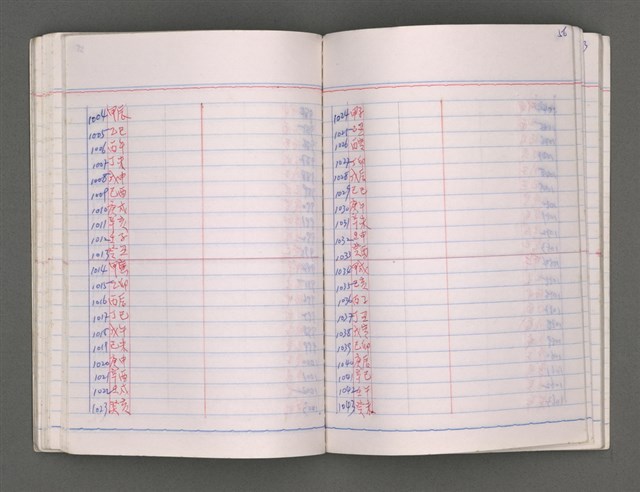 1004 甲辰
1005 乙巳
1006 丙午
1007 丁未
1008 戊申
1009 己酉
1010 庚戌
1011 辛亥
1012 壬子
1013 癸丑
1014 甲寅
1015 乙卯
1016 丙辰
1017 丁巳
1018 戊午
1019 己未
1020 庚申
1021 辛酉
1022 壬戌
1023 癸亥
56
1024 甲子
1025 乙丑
1026 丙寅
1027 丁卯
1028 戊辰
1029 己巳
1030 庚午
1031 辛未
1032 壬申
1033 癸酉
1034 甲戌
1035 乙亥
1036 丙子
1037 丁丑
1038 戊寅
1039 己卯
1040 庚辰
1041 辛巳
1042 壬午
1043 癸未